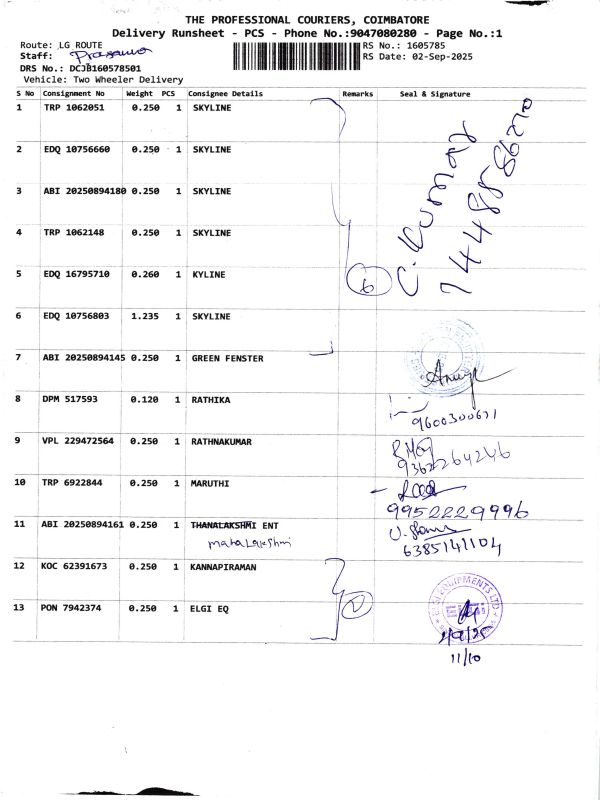 THE PROFESSIONAL COURIERS, COIMBATORE
Delivery Runsheet - PCS - Phone No.:9047080280 - Page No.:1
Route: LG ROUTE RS No.: 1605785
Staff: Prasanna RS Date: 02-Sep-2025
DRS No.: DCJB160578501
Vehicle: Two Wheeler Delivery
S No Consignment No Weight PCS Consignee Details Remarks Seal & Signature
1 TRP 1062051 0.250 1 SKYLINE
2 EDQ 10756660 0.250 1 SKYLINE
3 ABI 20250894180 0.250 1 SKYLINE
4 TRP 1062148 0.250 1 SKYLINE
5 EDQ 16795710 0.260 1 KYLINE 6
C. Kumar
6 EDQ 10756803 1.235 1 SKYLINE
7 ABI 20250894145 0.250 1 GREEN FENSTER
8 DPM 517593 0.120 1 RATHIKA
9600300671
9 VPL 229472564 0.250 1 RATHNAKUMAR
9362264246
10 TRP 6922844 0.250 1 MARUTHI
9952229996
11 ABI 20250894161 0.250 1 THANALAKSHMI ENT
mahalakshmi
6385141104
12 KOC 62391673 0.250 1 KANNAPIRAMAN
13 PON 7942374 0.250 1 ELGI EQ 2
ELGI EQUIPMENTS LTD
2/9/25
11/10